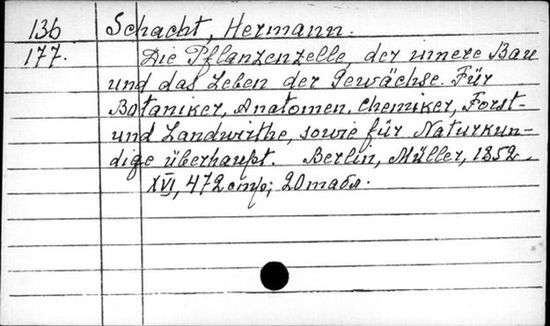 136 Schacht, Hermann.
177. Die Pflanzenzelle, der innere Bau
und das Leben der Gewächse. Für
Botaniker, Anatomen, Chemiker, Forst-
und Landwirthe, sowie für Naturkun-
dige überhaupt. Berlin, Müller, 1852.
XVI, 472 стр; 20 табл.